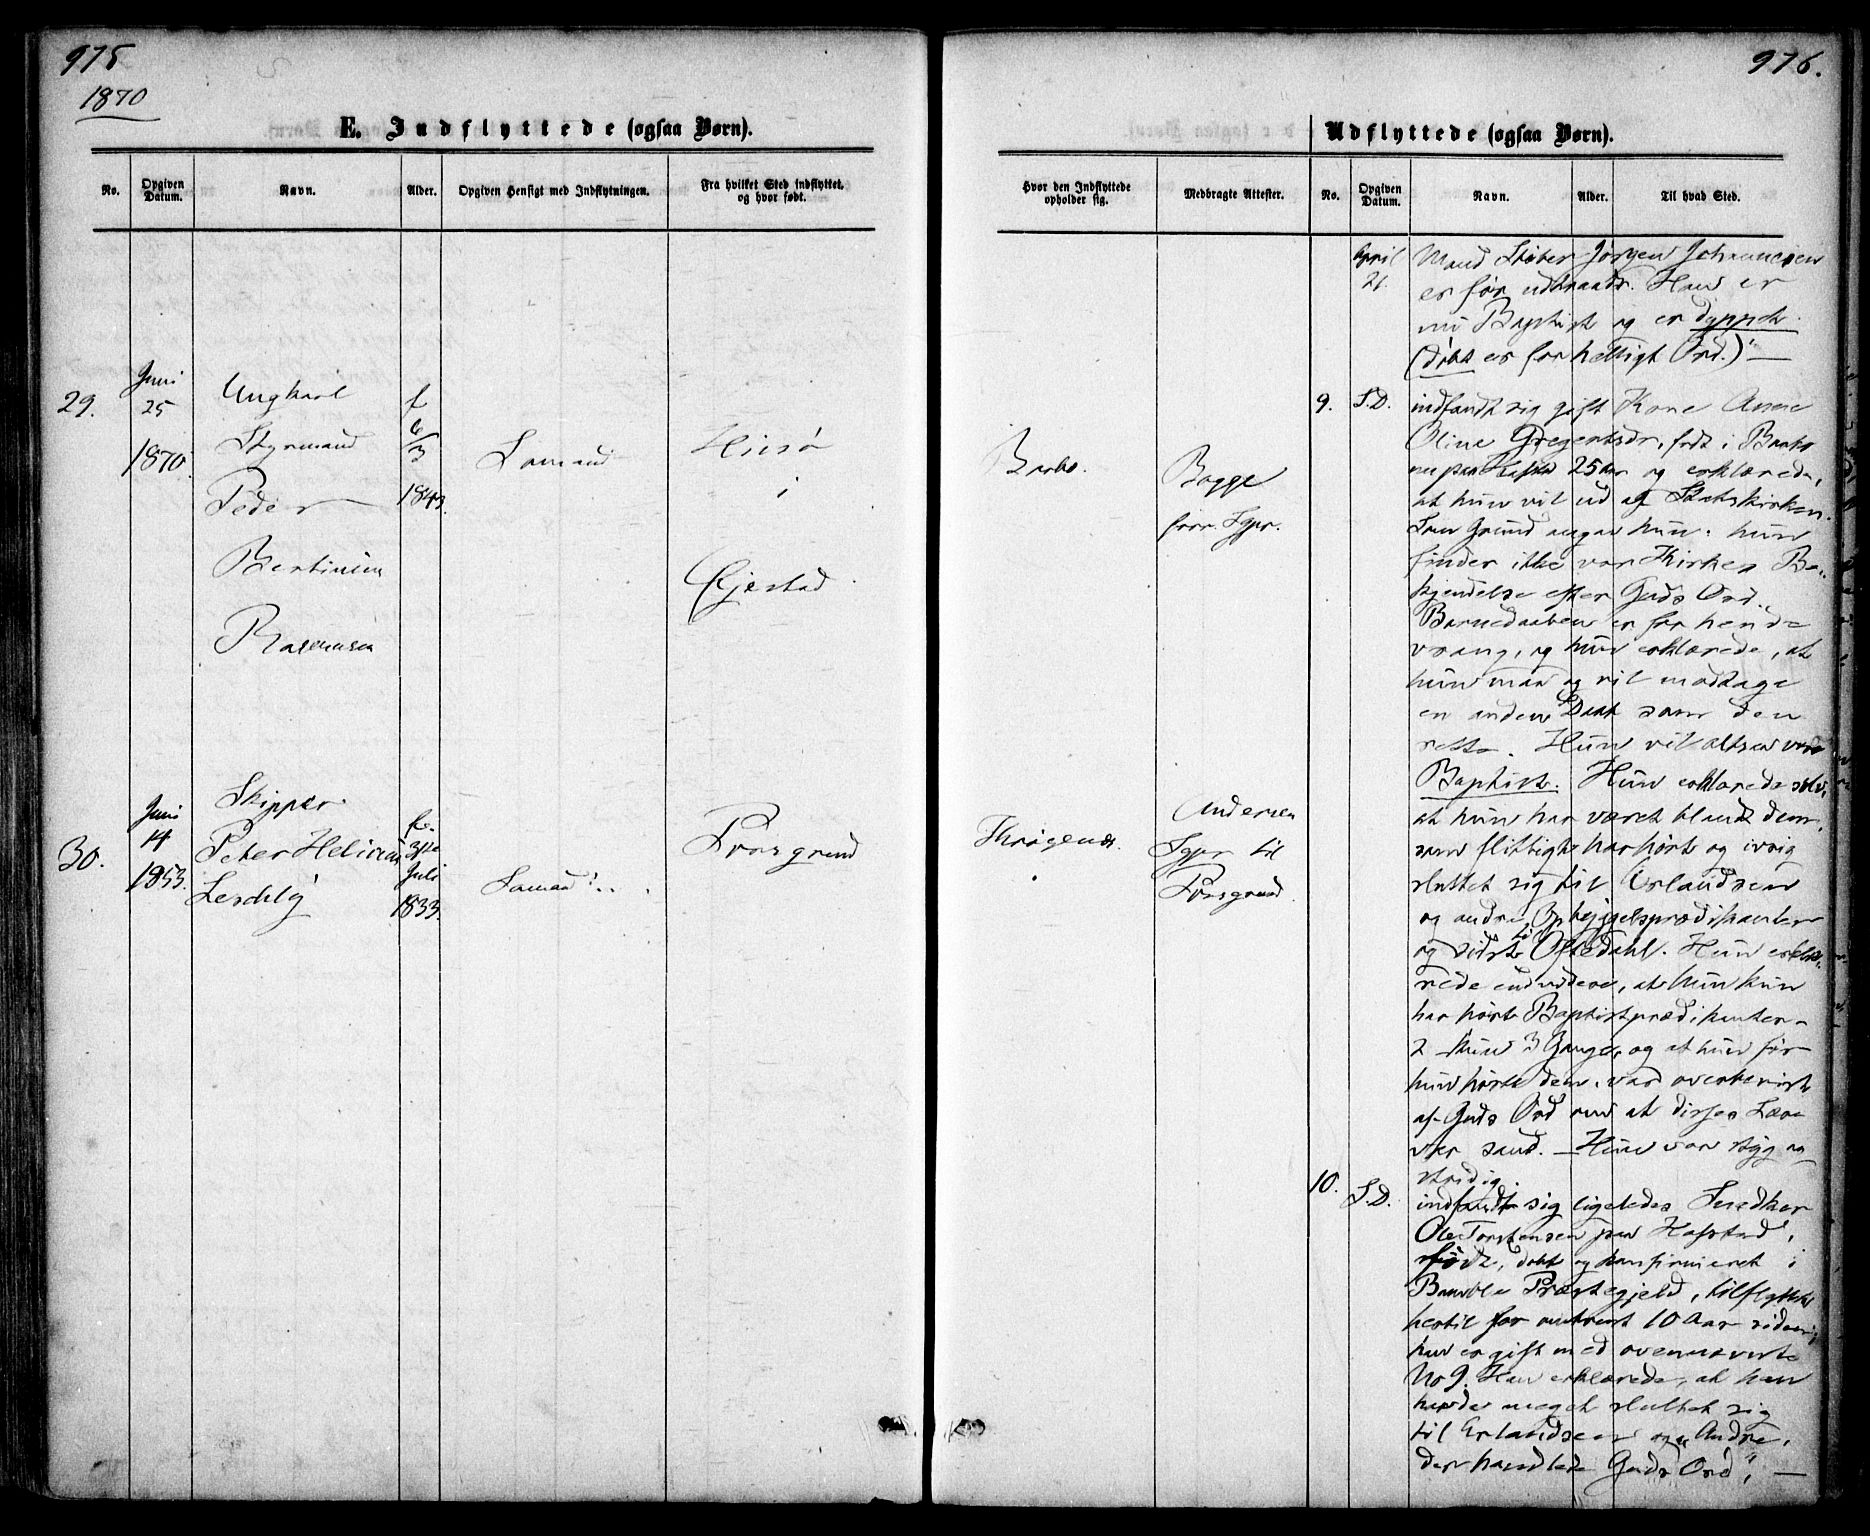 975
1870
E. Indflyttede (ogsaa Børn).
No.
Opgiven Datum.
Navn.
Alder.
Opgiven Hensigt med Indflytningen.
Fra hvilket Sted indflyttet, og hvor født.
29.
Juni
25
1870.
Ungkarl
Styrmand
Peder
Bertinius
Rasmussen
f
6/3
1843.
Sømand
Hisø
i
Øjestad
30.
Juni
14
1853.
Skipper
Peter
Juli
1833.
Porsgrund
976.
Udflyttede (ogsaa Børn).
Hvor den Indflyttede opholder sig.
Medbragte Attester.
No.
Opgiven Datum.
Navn.
Alder.
Til hvad Sted.
Barbo.
Bagge
Andersen
Sgpr til
Porsgrund.
April
21.
Mand Støber Jørgen Johannesen
er før udtraadt. Han er
nu Baptist og er dyppet
(døbt er for helligt Ord.)" —
9.
S.D.
indfandt sig gift Kone Anne
Oline Gregertsdr, født i Barbo
nu paa 25 Aar og erklærede,
at hun vil ud af Statskirken.
Som Grund angav hun: hun
finder ikke vor Kirkes Be-
kjendelse efter Guds Ord.
Barnedaaben er for hende
vrang, og hun erklærede, at
hun maa og vil modtage
en anden Daab som den
rette. Hun vil altsaa være
Baptist. Hun erklærede selv,
at hun har været blandt dem,
som flittigt har hørt og ivrig
sluttet sig til Erlandsen
og andre Opbyggelsprædikanter
og sidst til Oftedahl. Hun erklæ-
rede endvidere, at hun kun
har hørt Baptistprædikanter
2 - kun 3 Gange, og at hun før
hun hørte dem, var overbevist
af Guds Ord om at disses Lære
var sand. — Hun var styg og
stridig.
10.
S.D.
indfandt sig ligeledes Snedker
Ole Torstensen paa Hafstad,
født, døbt og konfirmeret i
Bamble Præstegjeld, tilflyttet
hertil for omtrent 10 Aar siden;
han er gift med ovennævnte
No 9. Han erklærede, at han
havde meget sluttet sig
til Erlandsen og "Andre,
der handlede Guds Ord", —